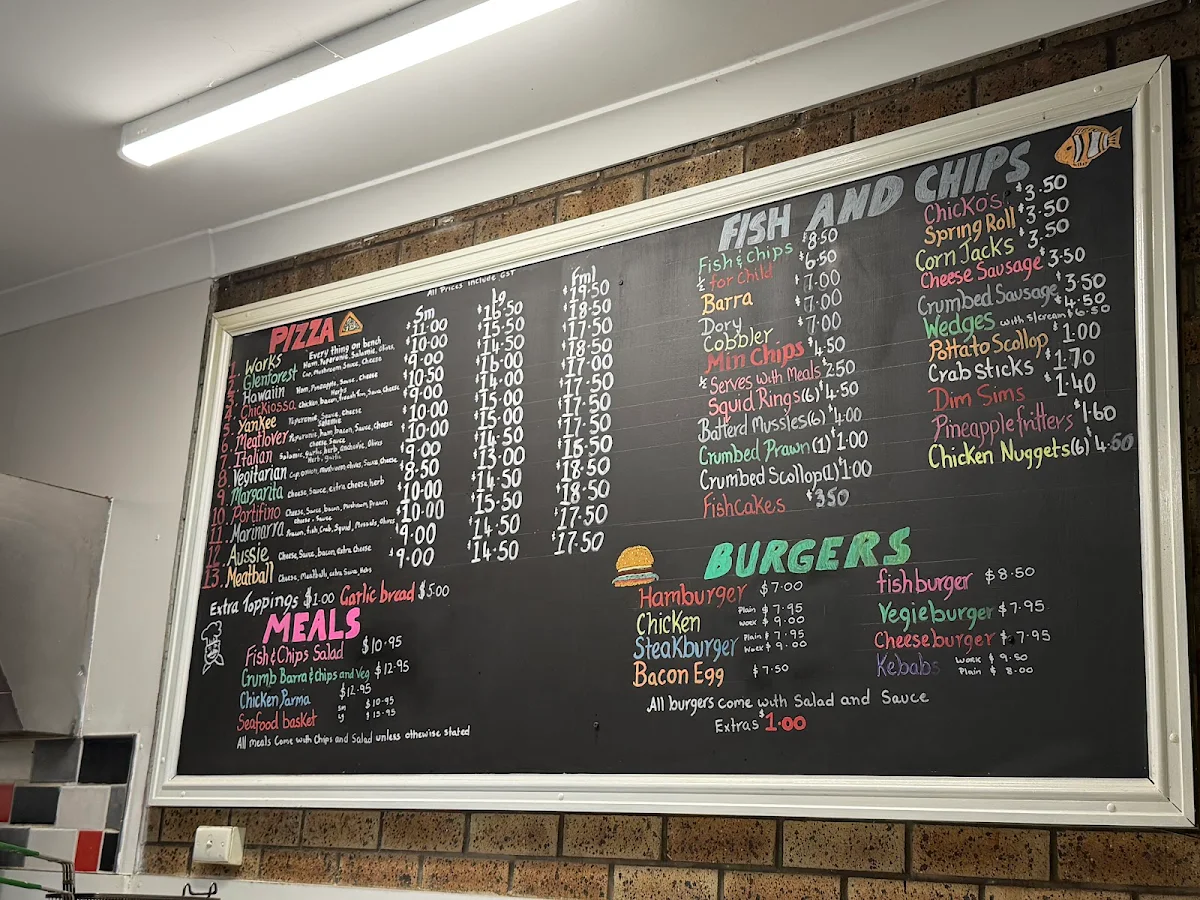 All Prices Include GST
PIZZA
Sm Lg Fml
1. Works Every thing on bench $11.00 $16.50 $19.50
2. Glenforest Ham, Peperonie, Salamie, Olives, Cap, Mushroom, Sauce, Cheese $10.00 $15.50 $18.50
3. Hawaiin Ham, Pineapple, Sauce, Cheese $9.00 $14.50 $17.50
4. Chickiossa Herbs chicken, bacon, fresh tom, Sauce, Cheese $10.50 $16.00 $18.50
5. Yankee Peperonie, Sauce, Cheese $9.00 $14.00 $17.00
6. Meatlover Salamie Peperonie, ham, bacon, Sauce, cheese $10.00 $15.00 $17.50
7. Italian Cheese, Sauce Salamie, Garlic, herb, anchovie, Olives $10.00 $15.00 $17.50
8. Vegitarian Herb, Garlic Cap, onion, mushroom, olives, Sauce, Cheese $9.00 $14.50 $17.50
9. Margarita Cheese, Sauce, extra cheese, herb $8.50 $13.00 $16.50
10. Portifino Cheese, Sauce, bacon, Mushroom, Prawn $10.00 $14.50 $18.50
11. Marinarra Cheese, Sauce Prawn, fish, Crab, Squid, Mussels, Olives $10.00 $15.50 $18.50
12. Aussie Cheese, Sauce, bacon, extra Cheese $9.00 $14.50 $17.50
13. Meatball Cheese, Meatballs, extra Sauce, Herbs $9.00 $14.50 $17.50
Extra Toppings $1.00 Garlic bread $5.00
MEALS
Fish & Chips Salad $10.95
Crumb Barra & Chips and Veg $12.95
Chicken Parma $12.95
Seafood basket sm $10.95
lg $15.95
All meals Come with Chips and Salad unless otherwise stated
FISH AND CHIPS
Fish & Chips $8.50
½ for Child $6.50
Barra $7.00
Dory $7.00
Cobbler $7.00
Min Chips $4.50
½ Serves with Meals $2.50
Squid Rings (6) $4.50
Batterd Mussles (6) $4.00
Crumbed Prawn (1) $1.00
Crumbed Scollop (1) $1.00
Fishcakes $3.50
Chicko's $3.50
Spring Roll $3.50
Corn Jacks $3.50
Cheese Sausage $3.50
Crumbed Sausage $3.50
Wedges $4.50 with s/cream $6.50
Pottato Scollop $1.00
Crab sticks $1.70
Dim Sims $1.40
Pineapple fritters $1.60
Chicken Nuggets (6) $4.50
BURGERS
Hamburger $7.00
Chicken Plain $7.95
Work $9.00
Steakburger Plain $7.95
Work $9.00
Bacon Egg $7.50
fishburger $8.50
Vegieburger $7.95
Cheeseburger $7.95
Kebabs Work $9.50
Plain $8.00
All burgers come with Salad and Sauce
Extras $1.00